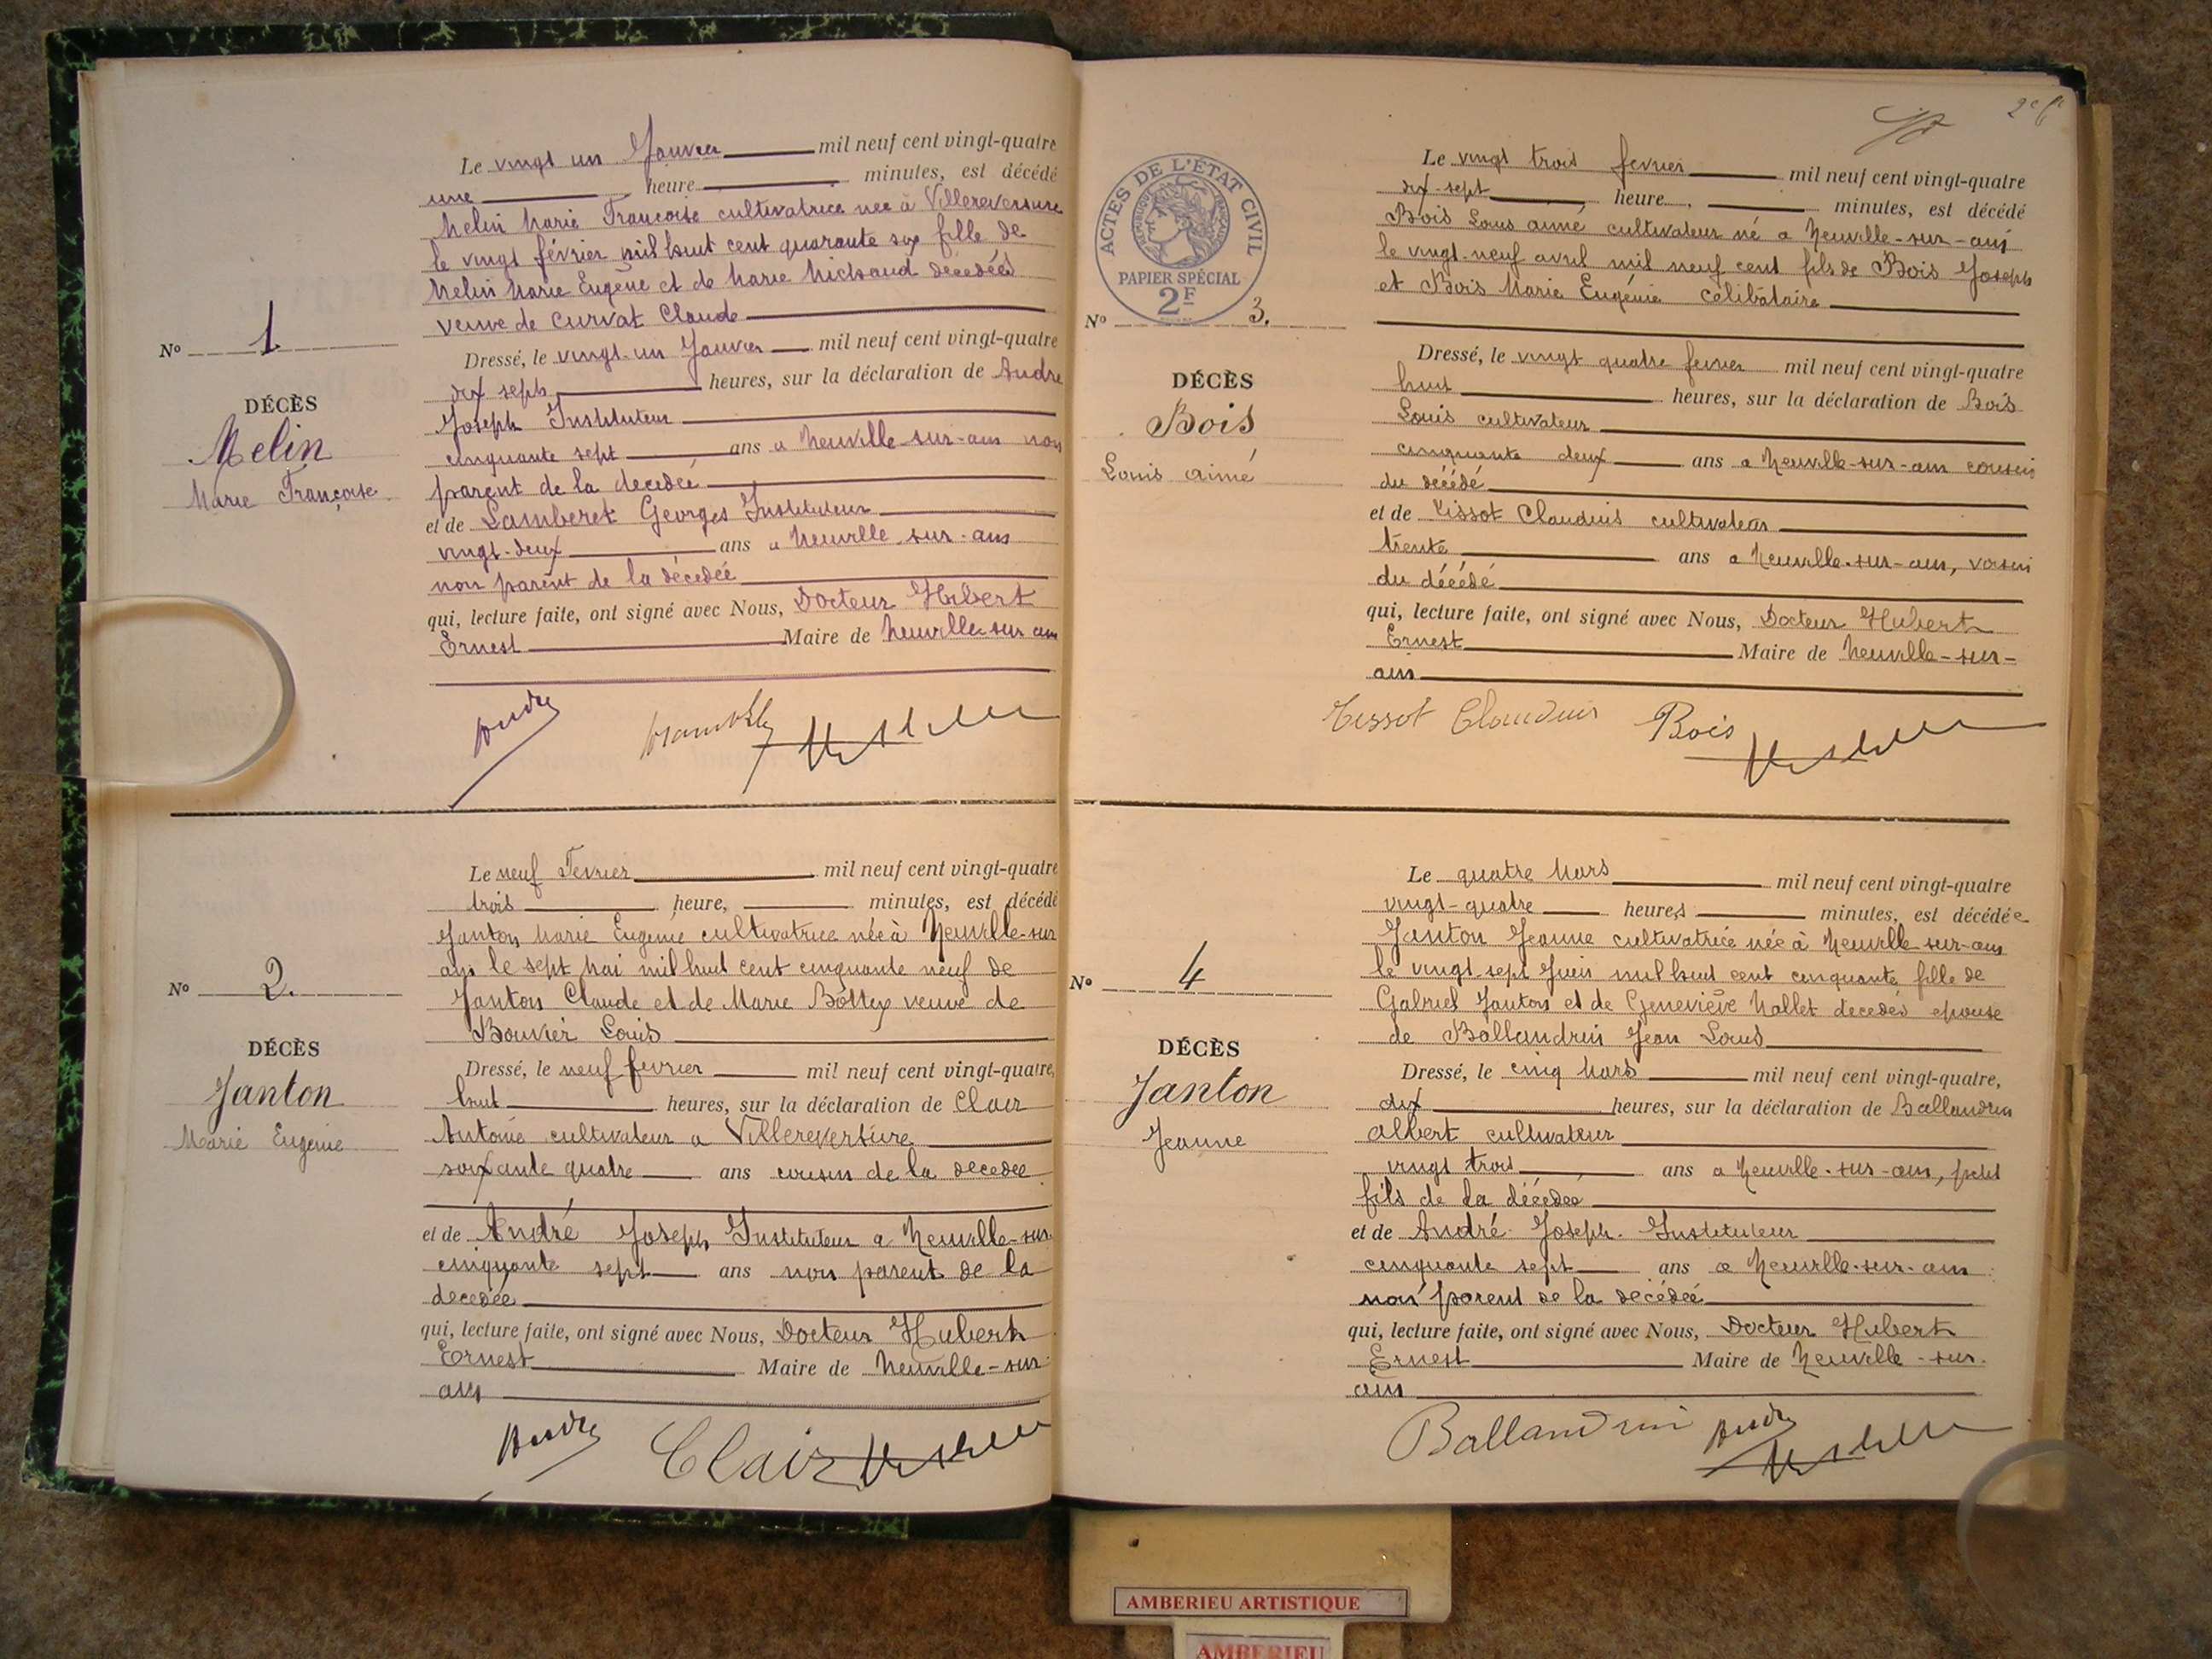 Le vingt un Janvier mil neuf cent vingt-quatre
une heure minutes, est décédé
Melin Marie Francoise cultivatrice nee à Villereversure
le vingt février mil huit cent quarante six fille de
Melin Marie Eugène et de Marie Michaud décédés
veuve de Curvat Claude
Nº 1.
DÉCÈS
Melin
Marie Françoise
Dressé, le vingt-un Janvier mil neuf cent vingt-quatre
dix sept heures, sur la déclaration de Andre
Joseph Instituteur
cinquante sept ans a Neuville-sur-ain non
parent de la decedée
et de Lamberet Georges Instituteur
vingt-deux ans a Neuville-sur-ain
non parent de la décedée
qui, lecture faite, ont signé avec Nous, Docteur Hubert
Ernest Maire de Neuville sur ain
Andre
Le neuf Fevrier mil neuf cent vingt-quatre
trois heure, minutes, est décédé
Janton Marie Eugenie cultivatrice née à Neuville-sur
ain le sept Mai mil huit cent cinquante neuf de
Janton Claude et de Marie Bottex veuve de
Bouvier Louis
Nº 2.
DÉCÈS
Janton
Marie Eugenie
Dressé, le neuf fevrier mil neuf cent vingt-quatre,
huit heures, sur la déclaration de Clair
Antoine cultivateur a Villereversure
soixante quatre ans cousin de la decedée
et de André Joseph Instituteur a Neuville-sur
cinquante sept ans non parent de la
decedée
qui, lecture faite, ont signé avec Nous, Docteur Hubert
Ernest Maire de Neuville-sur
ain
Andre Clair
2e f
ACTES DE L'ÉTAT CIVIL
PAPIER SPÉCIAL
2F
Le vingt trois fevrier mil neuf cent vingt-quatre
dix-sept heure, minutes, est décédé
Bois Louis aimé cultivateur né a Neuville-sur-ain
le vingt-neuf avril mil neuf cent fils de Bois Joseph
et Bois Marie Eugénie célibataire
Nº 3.
DÉCÈS
Bois
Louis aimé
Dressé, le vingt quatre fevrier mil neuf cent vingt-quatre
huit heures, sur la déclaration de Bois
Louis cultivateur
cinquante deux ans a Neuville-sur-ain cousin
du décédé
et de Tissot Claudius cultivateur
trente ans a Neuville-sur-ain, voisin
du décédé
qui, lecture faite, ont signé avec Nous, Docteur Hubert
Ernest Maire de Neuville-sur-
ain
Tissot Claudius Bois
Le quatre Mars mil neuf cent vingt-quatre
vingt-quatre heures minutes, est décédée
Janton Jeanne cultivatrice née à Neuville-sur-ain
le vingt-sept Juin mil huit cent cinquante fille de
Gabriel Janton et de Geneviève Mallet decedés epouse
de Ballandrin Jean Louis
Nº 4
DÉCÈS
Janton
Jeanne
Dressé, le cinq Mars mil neuf cent vingt-quatre,
dix heures, sur la déclaration de Ballandrin
Albert cultivateur
vingt trois ans a Neuville-sur-ain, petit
fils de la décédée
et de André Joseph. Instituteur
cinquante sept ans a Neuville-sur-ain
non parent de la décédée
qui, lecture faite, ont signé avec Nous, Docteur Hubert
Ernest Maire de Neuville-sur-
ain
Ballandrin Andre
AMBERIEU ARTISTIQUE
AMBERIEU